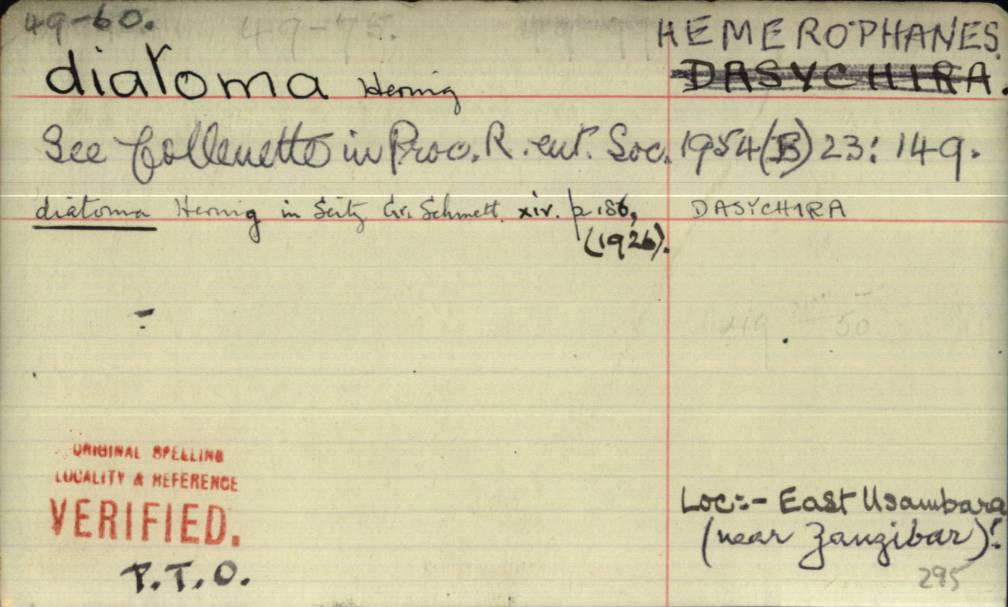 49-60. HEMEROPHANES.
diatoma Hering DASYCHIRA.
See Collenette in Proc. R. ent. Soc. 1954(B) 23: 149.
diatoma Hering in Seitz Gr. Schmett. xiv. p 186, DASYCHIRA
(1926).
50
ORIGINAL SPELLING
LOCALITY & REFERENCE
VERIFIED.
Loc:- East Usambara
(near Zanzibar).
P.T.O.
295